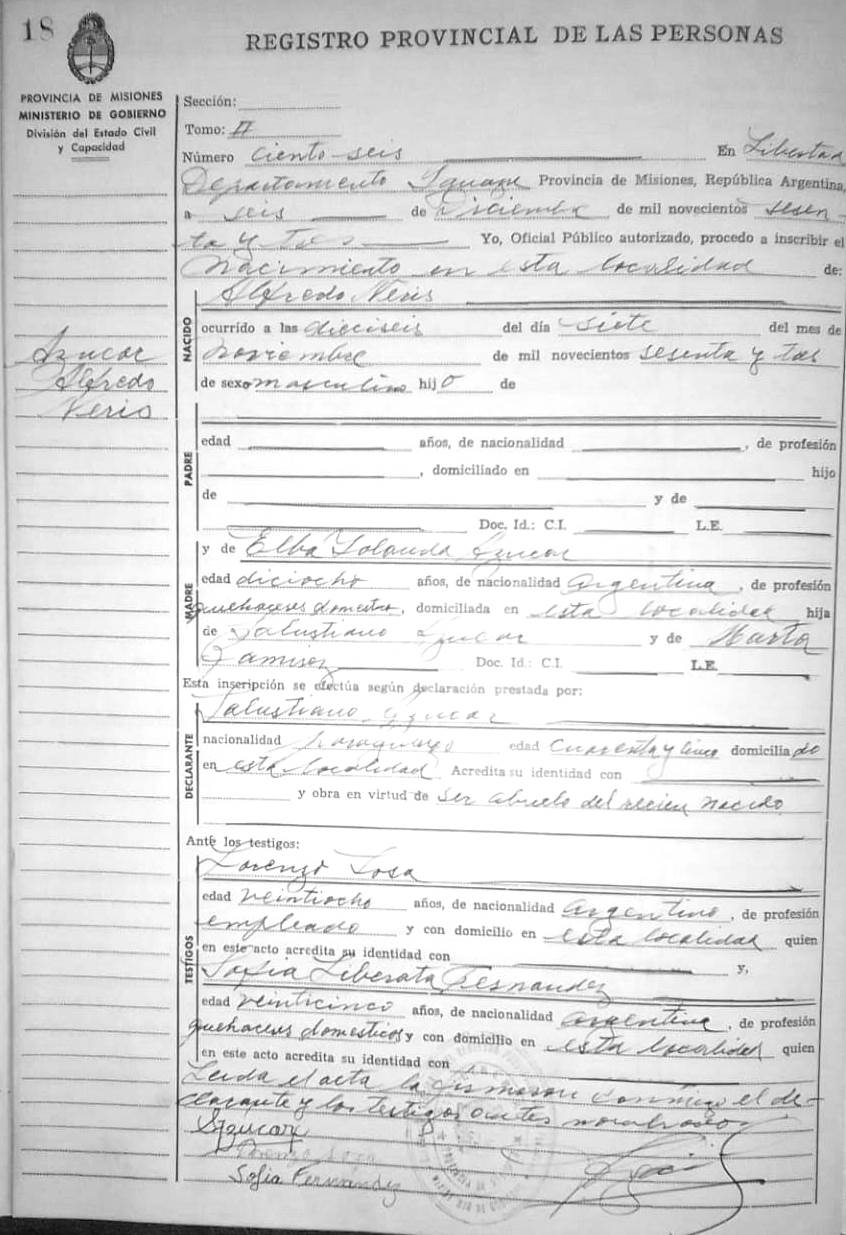 18
REGISTRO PROVINCIAL DE LAS PERSONAS
PROVINCIA DE MISIONES
MINISTERIO DE GOBIERNO
División del Estado Civil
y Capacidad
Sección:
Tomo: II
Número ciento seis En Libertad
Departamento Iguazu Provincia de Misiones, República Argentina,
a seis de Diciembre de mil novecientos sesen-
ta y tres Yo, Oficial Público autorizado, procedo a inscribir el
Nacimiento en esta localidad de:
Azucar
Alfredo
Neris
NACIDO
Alfredo Neris
ocurrido a las dieciseis del día siete del mes de
noviembre de mil novecientos sesenta y tres
de sexo masculino hijo de
PADRE
edad años, de nacionalidad , de profesión
, domiciliado en hijo
de y de
Doc. Id.: C.I. L.E.
MADRE
y de Elba Yolanda Azucar
edad diciocho años, de nacionalidad Argentina , de profesión
quehaceres domestico, domiciliada en esta localidad hija
de Salustiano Azucar y de Marta
Ramirez Doc. Id.: C.I. L.E.
Esta inscripción se efectúa según declaración prestada por:
DECLARANTE
Salustiano Azucar
nacionalidad paraguayo edad cuarenta y cinco domiciliado
en esta localidad Acredita su identidad con
y obra en virtud de ser abuelo del recien nacido
Ante los testigos:
TESTIGOS
Lorenzo Sosa
edad veintiocho años, de nacionalidad argentino , de profesión
empleado y con domicilio en esta localidad quien
en este acto acredita su identidad con y,
Sofia Liberata Fernandez
edad veinticinco años, de nacionalidad argentina , de profesión
quehaceres domesticos y con domicilio en esta localidad quien
en este acto acredita su identidad con
Leida el acta la firmaron conmigo el de-
clarante y los testigos antes nombrados
Azucar
Lorenzo Sosa
Sofia Fernández